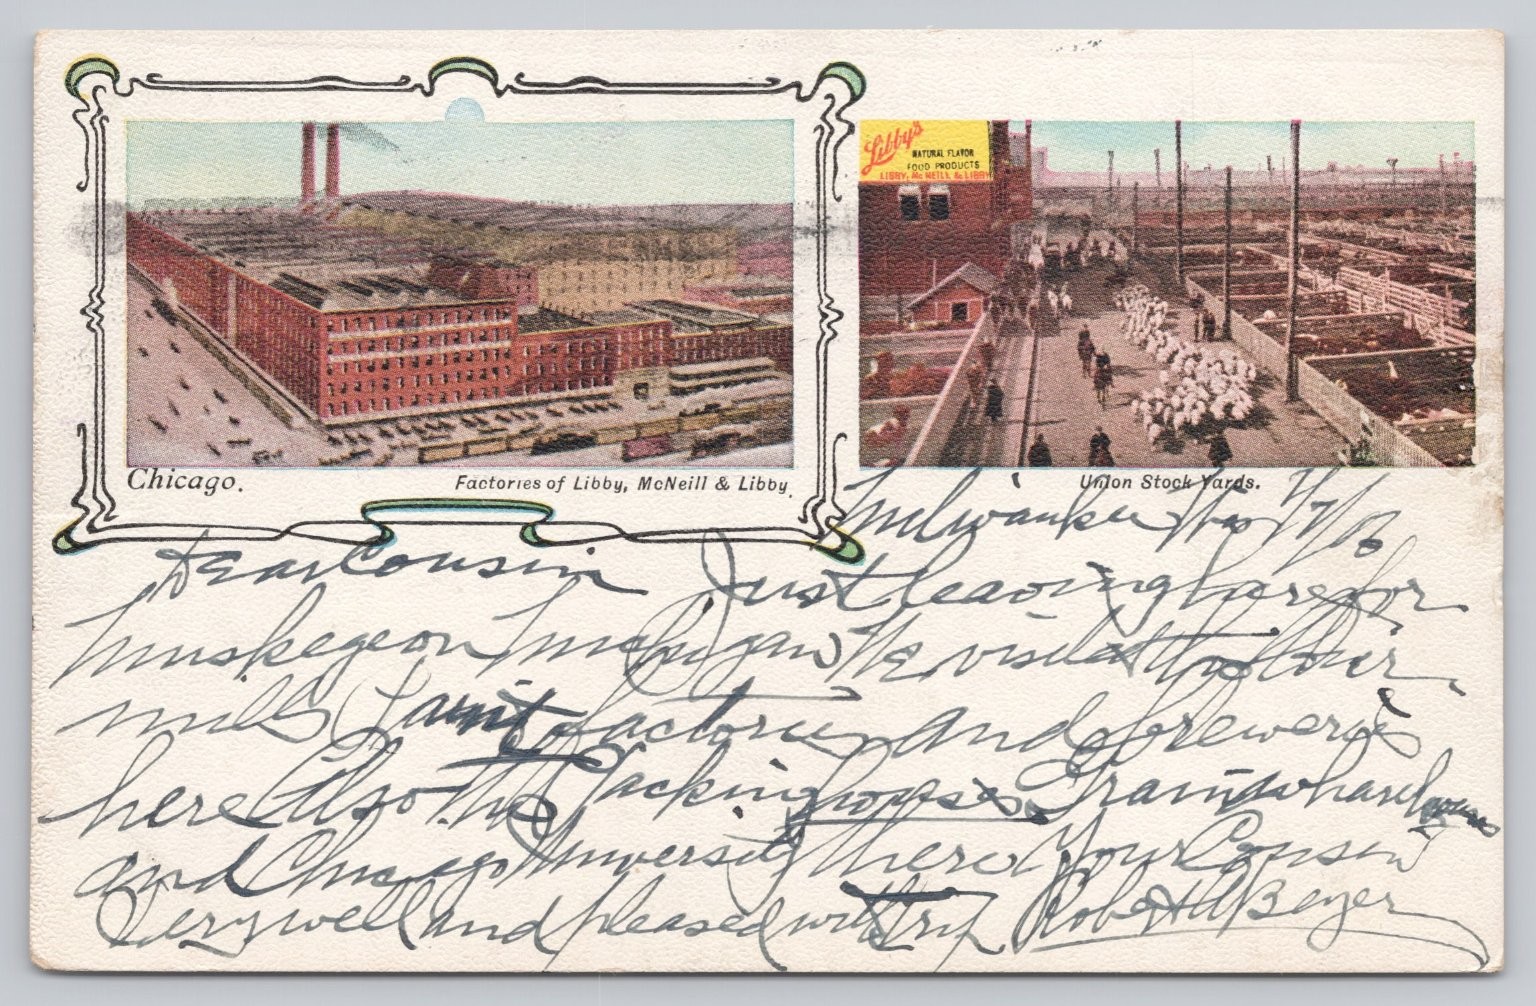 Libby's
NATURAL FLAVOR
FOOD PRODUCTS
LIBBY, McNEILL & LIBBY
Chicago.
Factories of Libby, McNeill & Libby.
Union Stock Yards.
Milwaukee Wis
Dear Cousin Just leaving here for
Muskegeon Michigan We visited the flour
mills Paint factories and brewerie
here Also the Packing houses Grain
and Chicago University there Your Cousin
Very well and pleased with trip Robert H Beyer